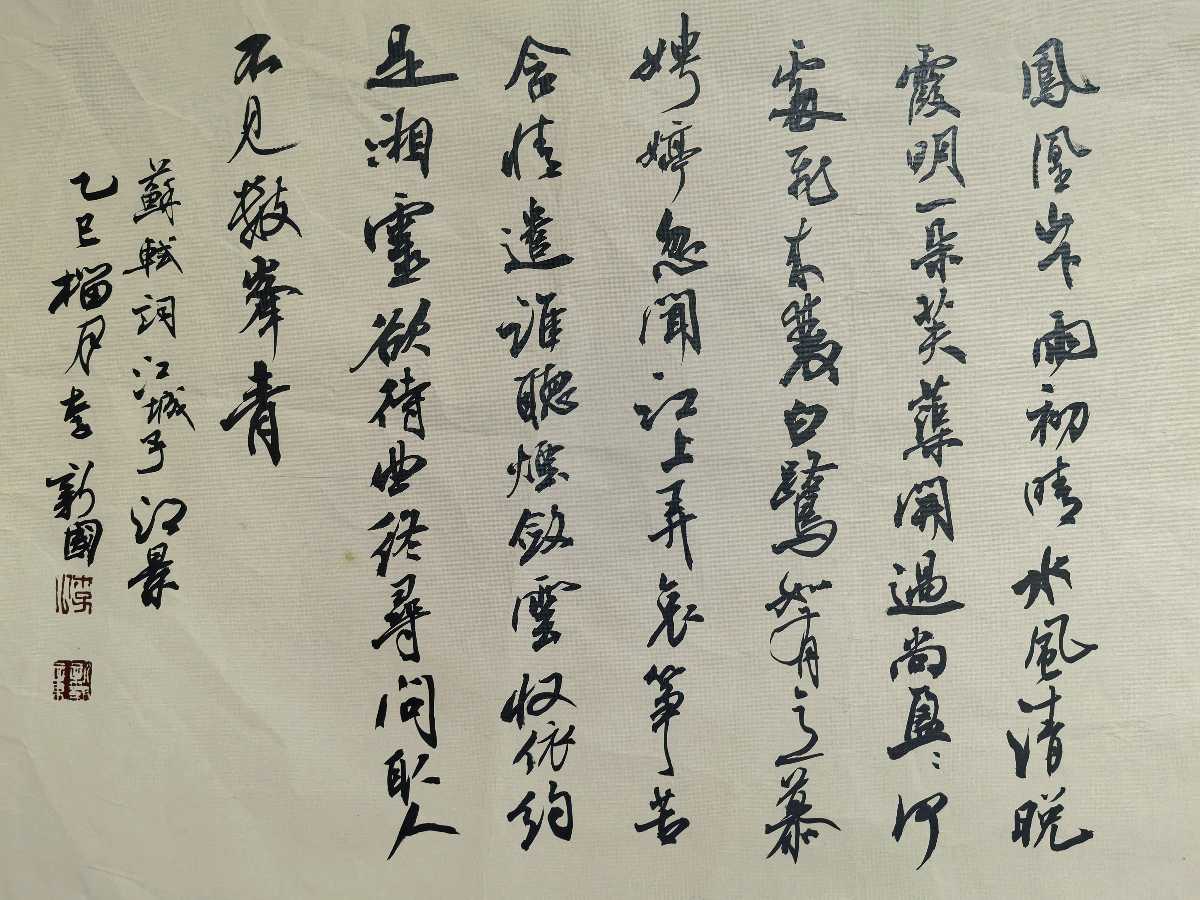 鳳凰山下雨初晴水風清晩
霞明一朵芙蕖開過尚盈〻何
處飛來雙白鷺如有意慕
娉婷忽聞江上弄哀箏苦
含情遣誰聽煙斂雲收依約
是湘靈欲待曲終尋問取人
不見數峯青
蘇軾詞江城子江景
乙巳榴月李新國